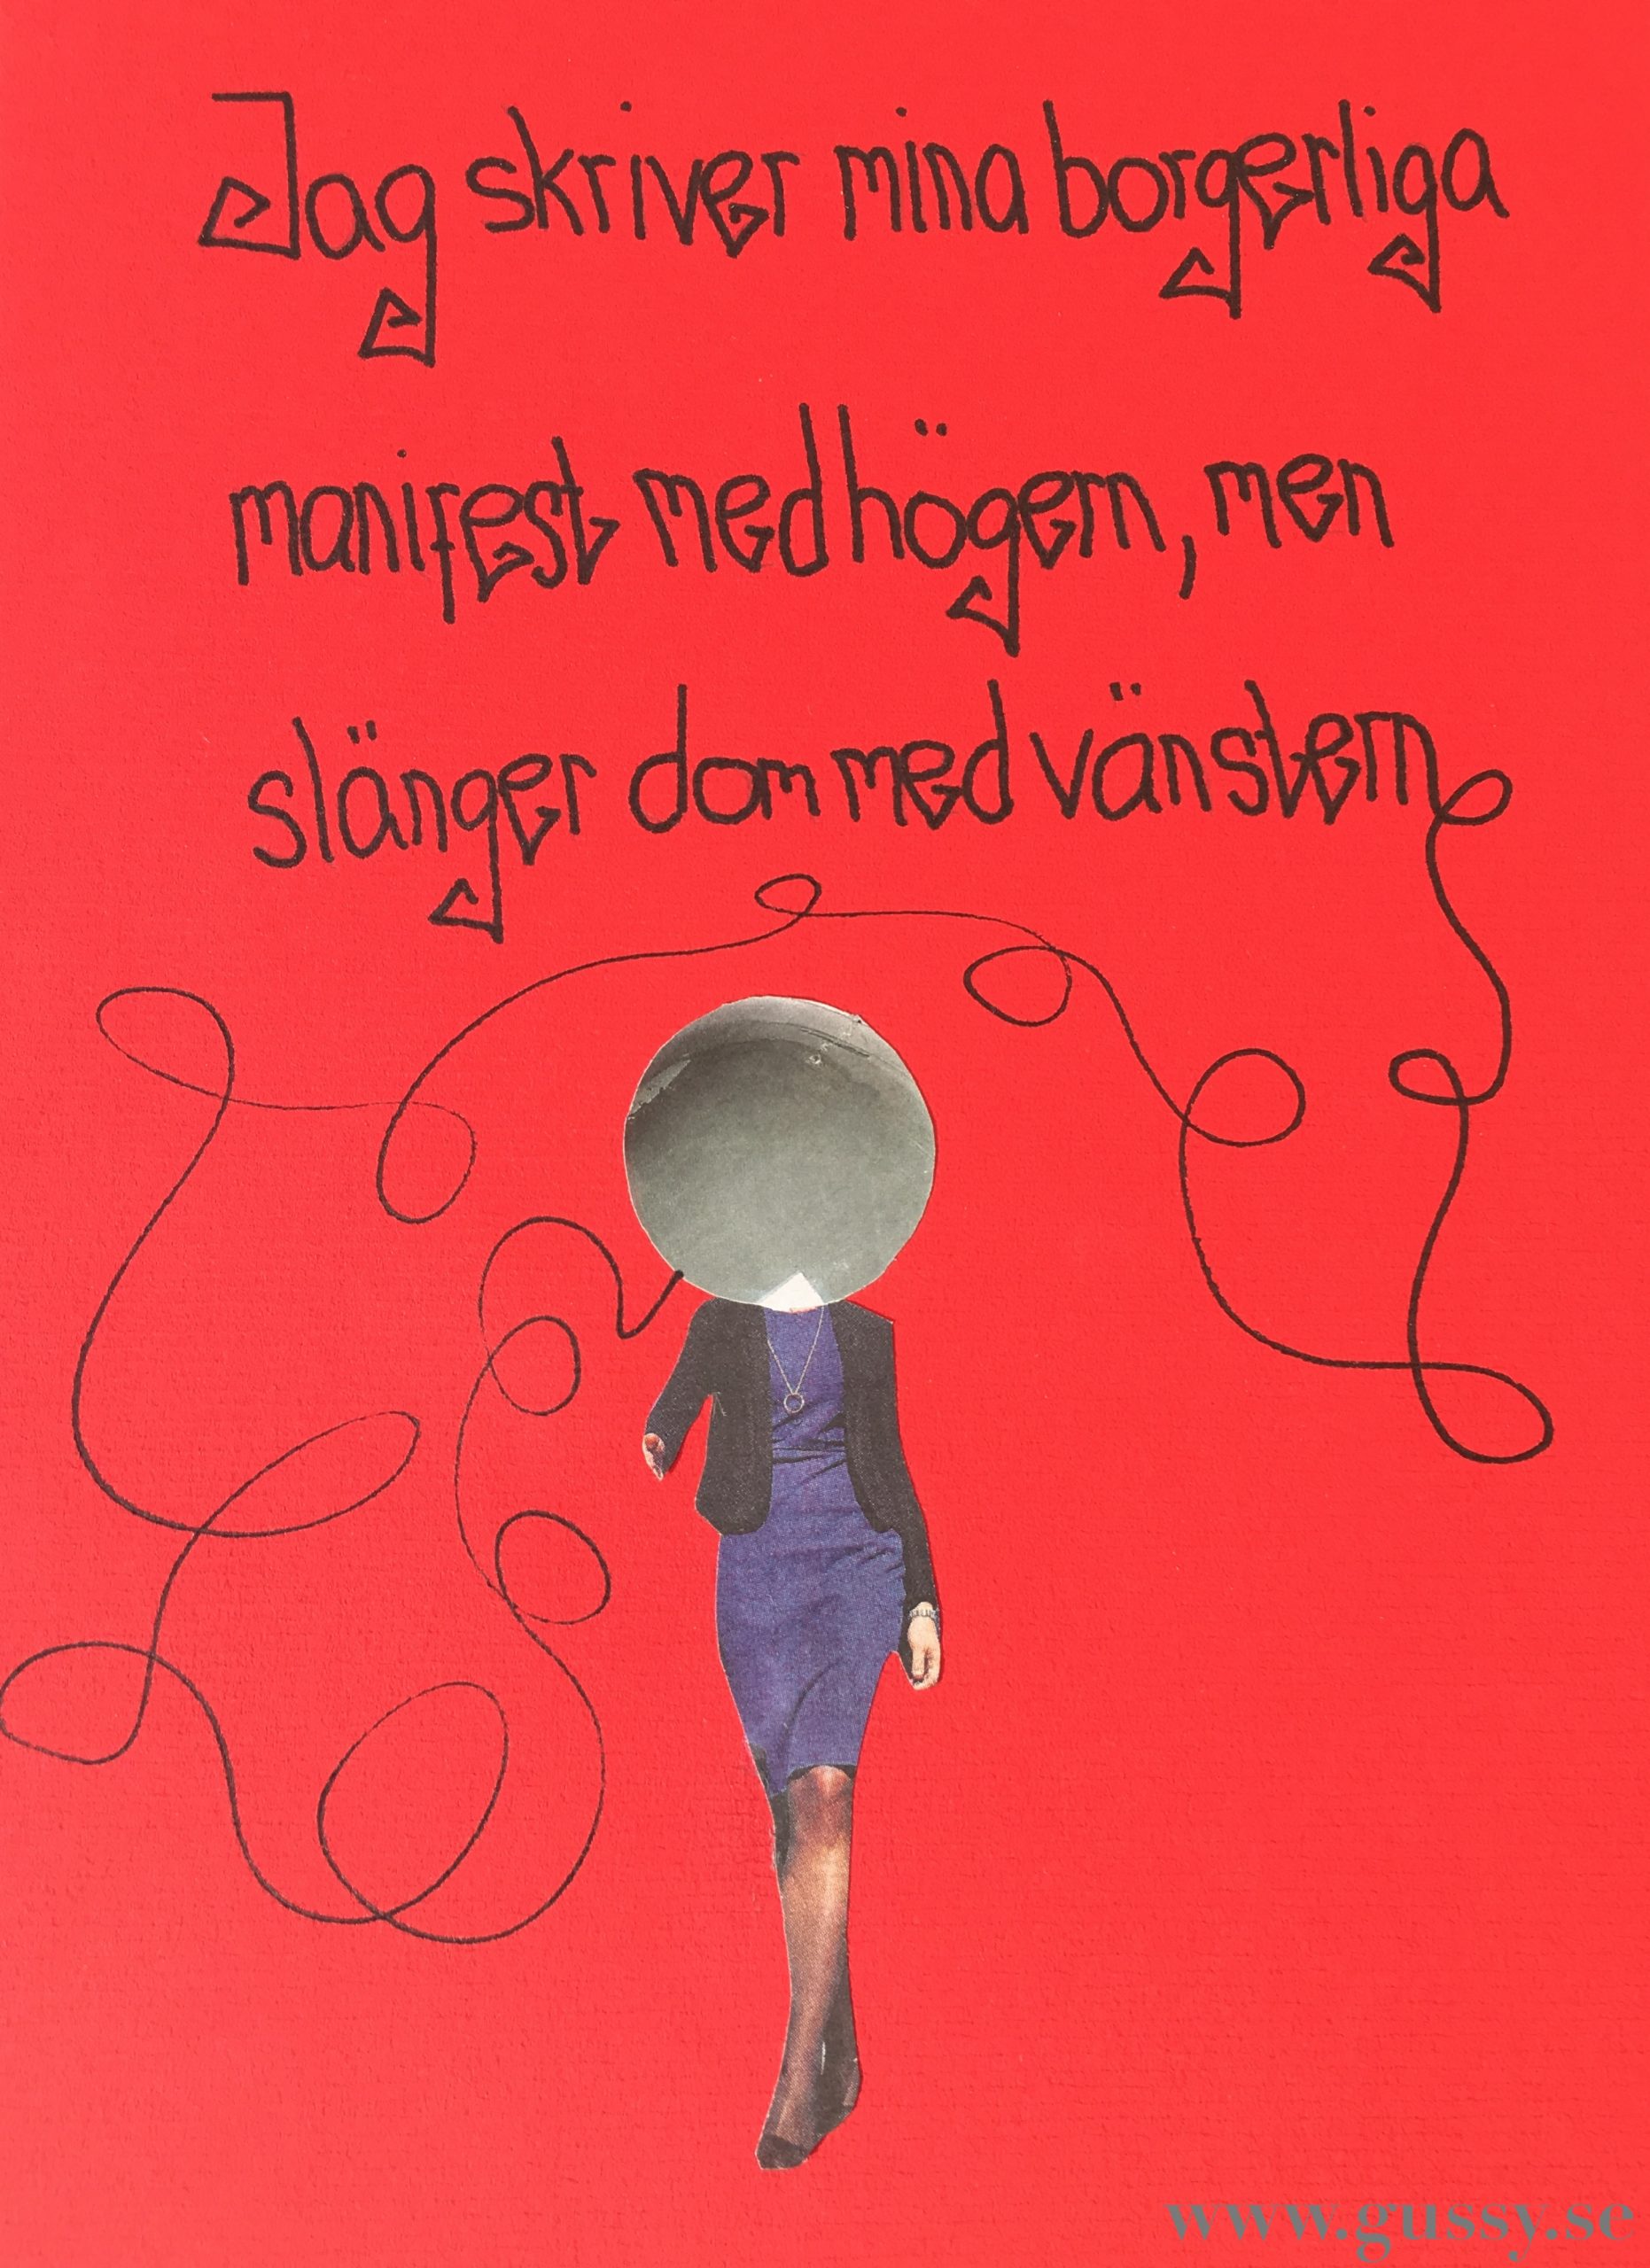 Jag skriver mina borgerliga
manifest med högern, men
slänger dom med vänstern
www.gussy.se